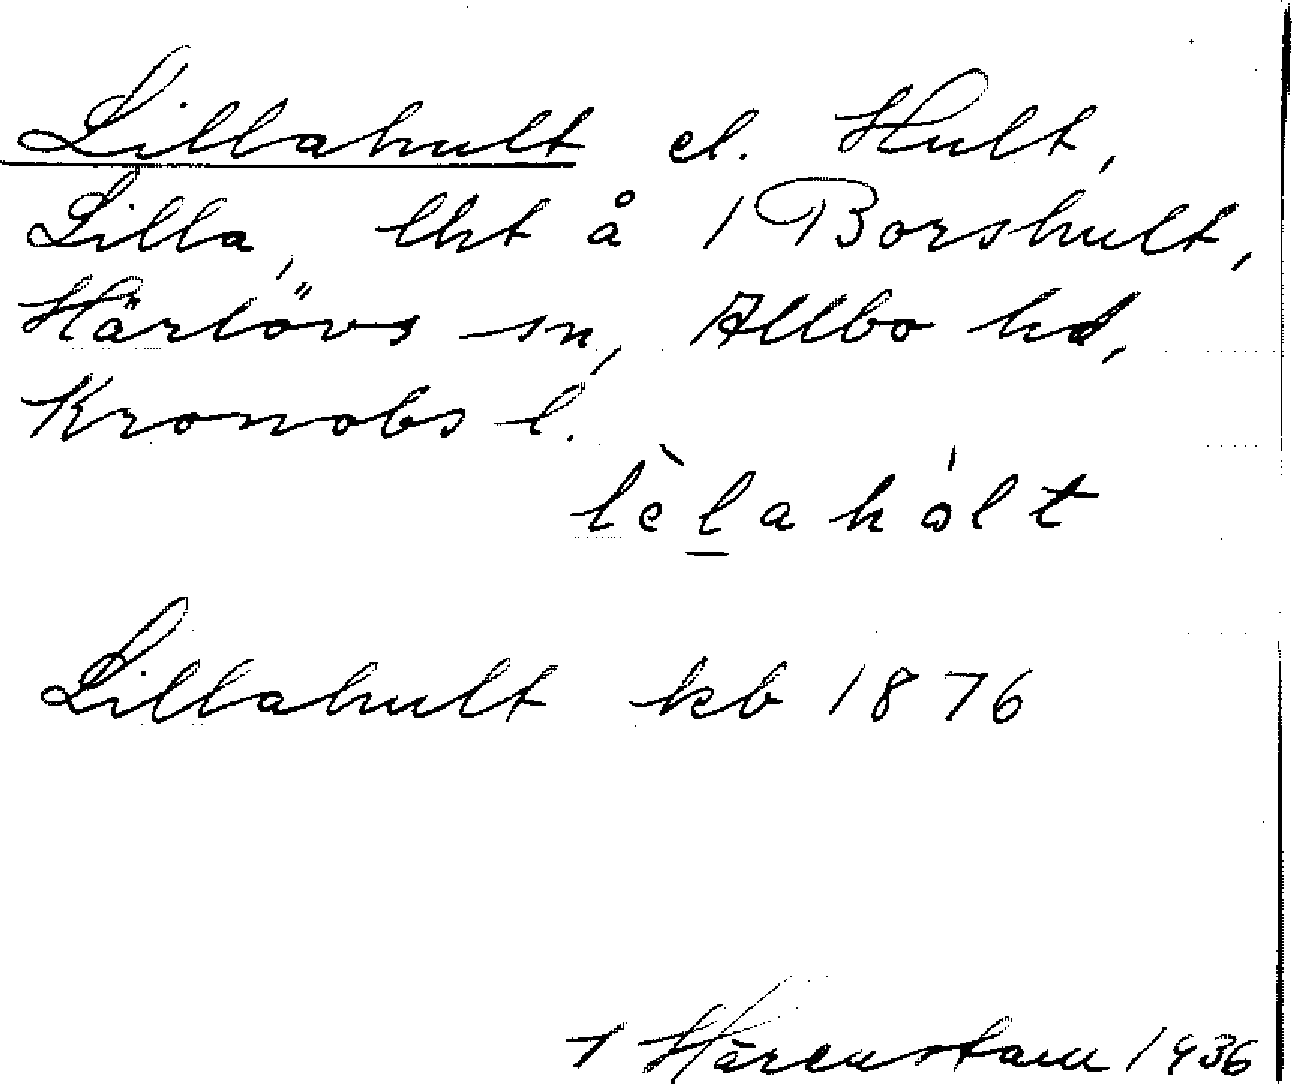 Lillahult el. Hult,
Lilla, lht å 1 Borshult,
Härlövs sn, Allbo hd,
Kronobs l.
lèlahólt
Lillahult kb 1876
Härenstam 1936